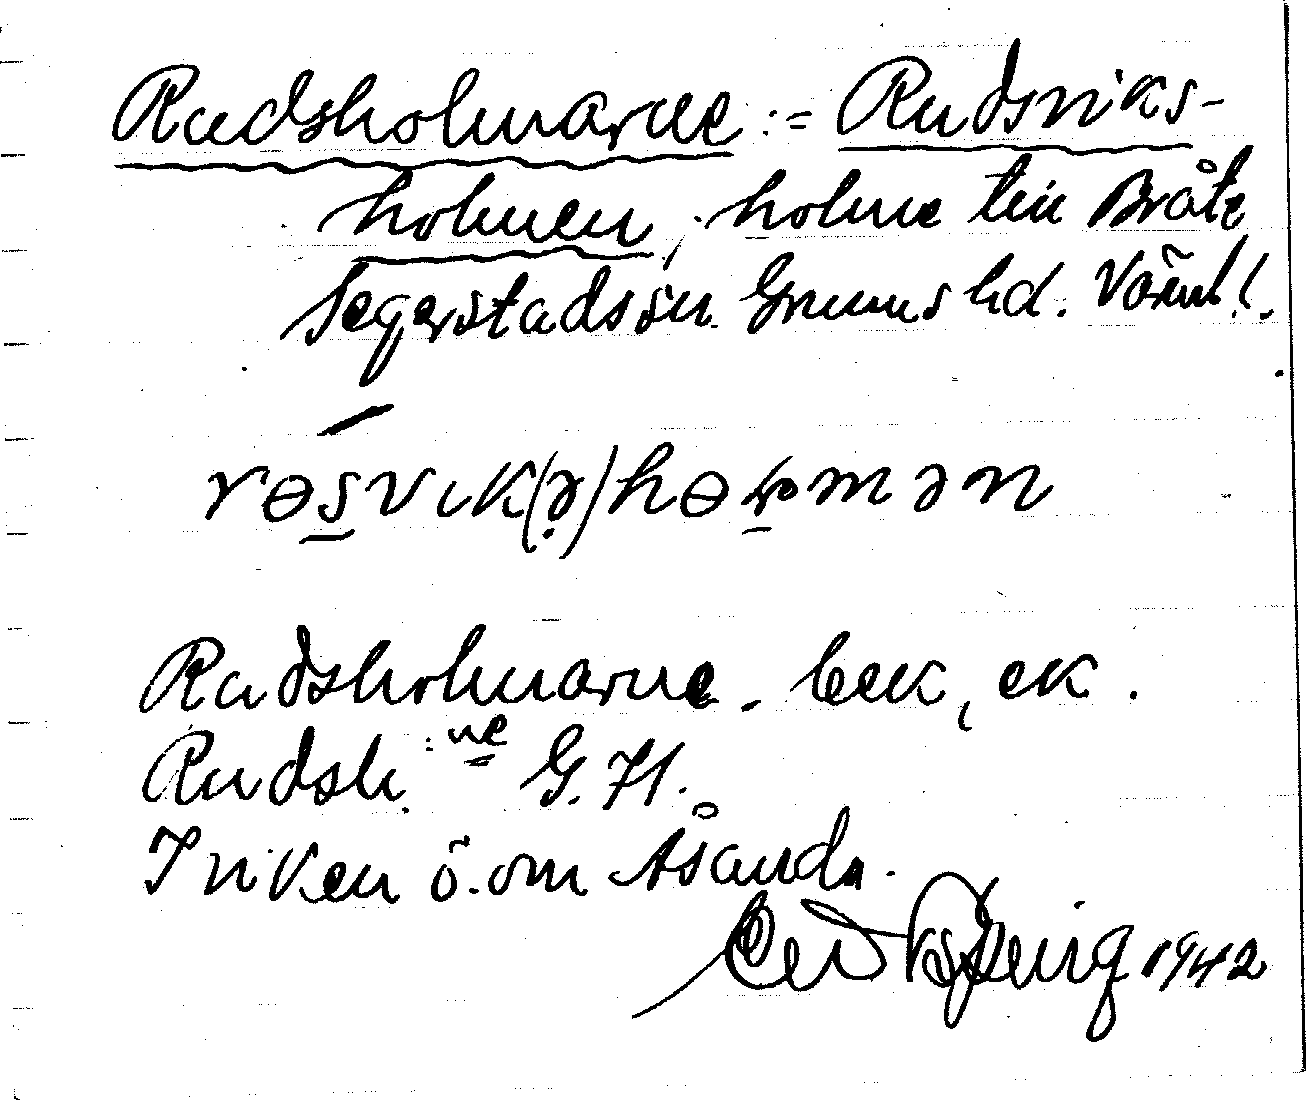 Rudsholmarne := Rudsviks-
holmen, holme till Bråte
Segerstads sn Grums hd. Värml.
rɵs̲vɩk(ə̣)hɵɽ̲mən
Rudsholmarne. bek, ek.
Rudsh:ne G.K.
I viken ö. om Åsanda.
1942